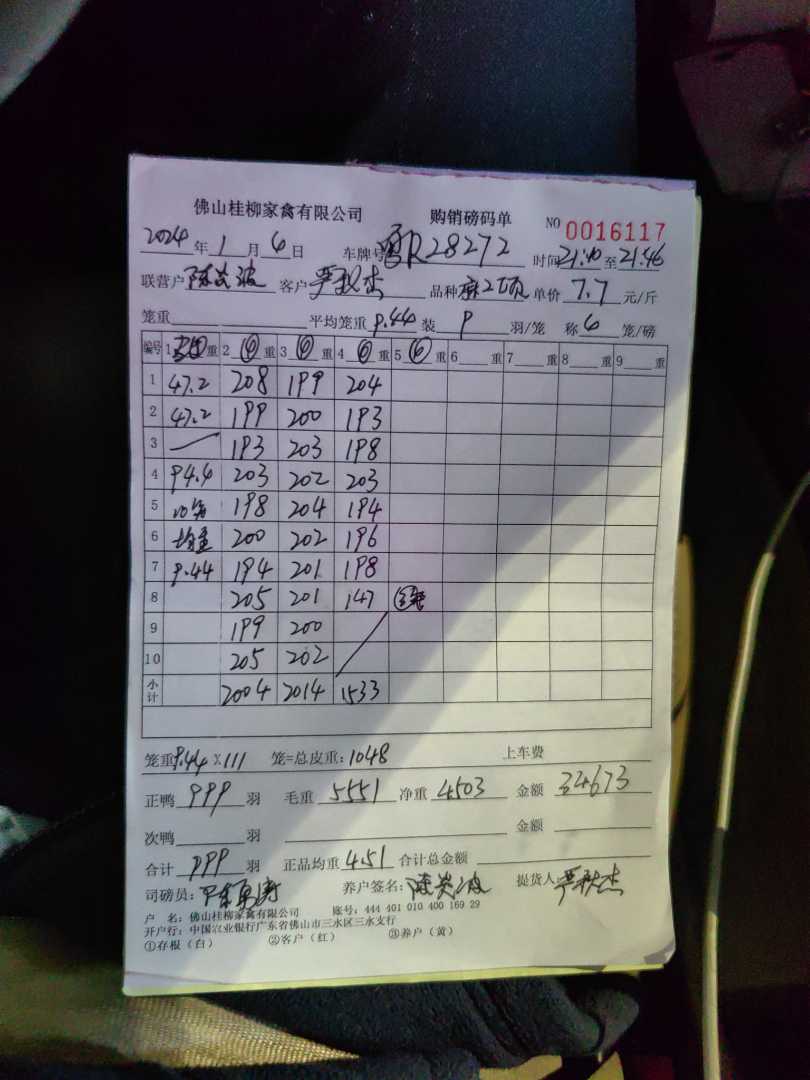 佛山桂柳家禽有限公司 购销磅码单 NO 0016117
2024年1月6日 车牌号 粤R28272 时间21:40至21:46
联营户 陈炎波 客户 严秋杰 品种 麻2 单价 7.7 元/斤
笼重 平均笼重 9.44 装 9 羽/笼 称 6 笼/磅
编号 1 重 2 ⑥ 重 3 ⑥ 重 4 ⑥ 重 5 ⑥ 重 6 重 7 重 8 重 9 重
1 47.2 208 199 204
2 47.2 199 200 193
3 193 203 198
4 94.4 203 202 203
5 10笼 198 204 194
6 均重 200 202 196
7 9.44 194 201 198
8 205 201 147
9 199 200
10 205 202
小计 2004 2014 1533
笼重 9.44 × 111 笼=总皮重: 1048 上车费
正鸭 999 羽 毛重 5551 净重 4503 金额 34673
次鸭 羽 金额
合计 999 羽 正品均重 4.51 合计总金额
司磅员: 养户签名: 陈炎波 提货人: 严秋杰
户 名: 佛山桂柳家禽有限公司 账号: 444 401 010 400 169 29
开户行: 中国农业银行广东省佛山市三水区三水支行
①存根(白) ②客户(红) ③养户(黄)